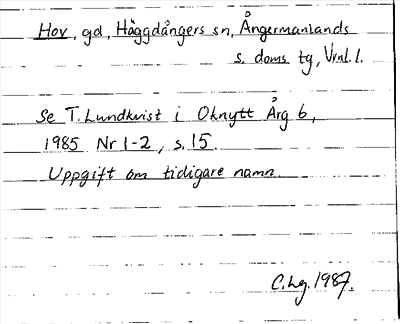 Hov, gd, Häggdångers sn, Ångermanlands
s. doms tg, Vrnl. l.
Se T. Lundkvist i Oknytt Årg 6,
1985 Nr 1-2, s. 15.
Uppgift om tidigare namn.
C. Lg. 1987.